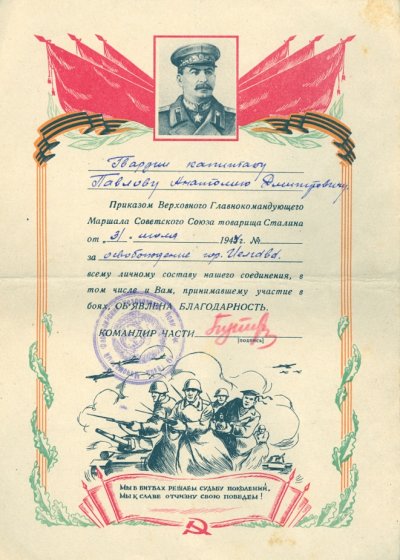 Гвардии капитану
Павлову Анатолию Дмитриевичу
Приказом Верховного Главнокомандующего
Маршала Советского Союза товарища Сталина
от „31“ июля 1944г. №
за освобождение гор. Иелгава.
всему личному составу нашего соединения, в
том числе и Вам, принимавшему участие в
боях, ОБ'ЯВЛЕНА БЛАГОДАРНОСТЬ.
КОМАНДИР ЧАСТИ
(подпись)
МЫ В БИТВАХ РЕШАЕМ СУДЬБУ ПОКОЛЕНИЙ,
МЫ К СЛАВЕ ОТЧИЗНУ СВОЮ ПОВЕДЕМ!